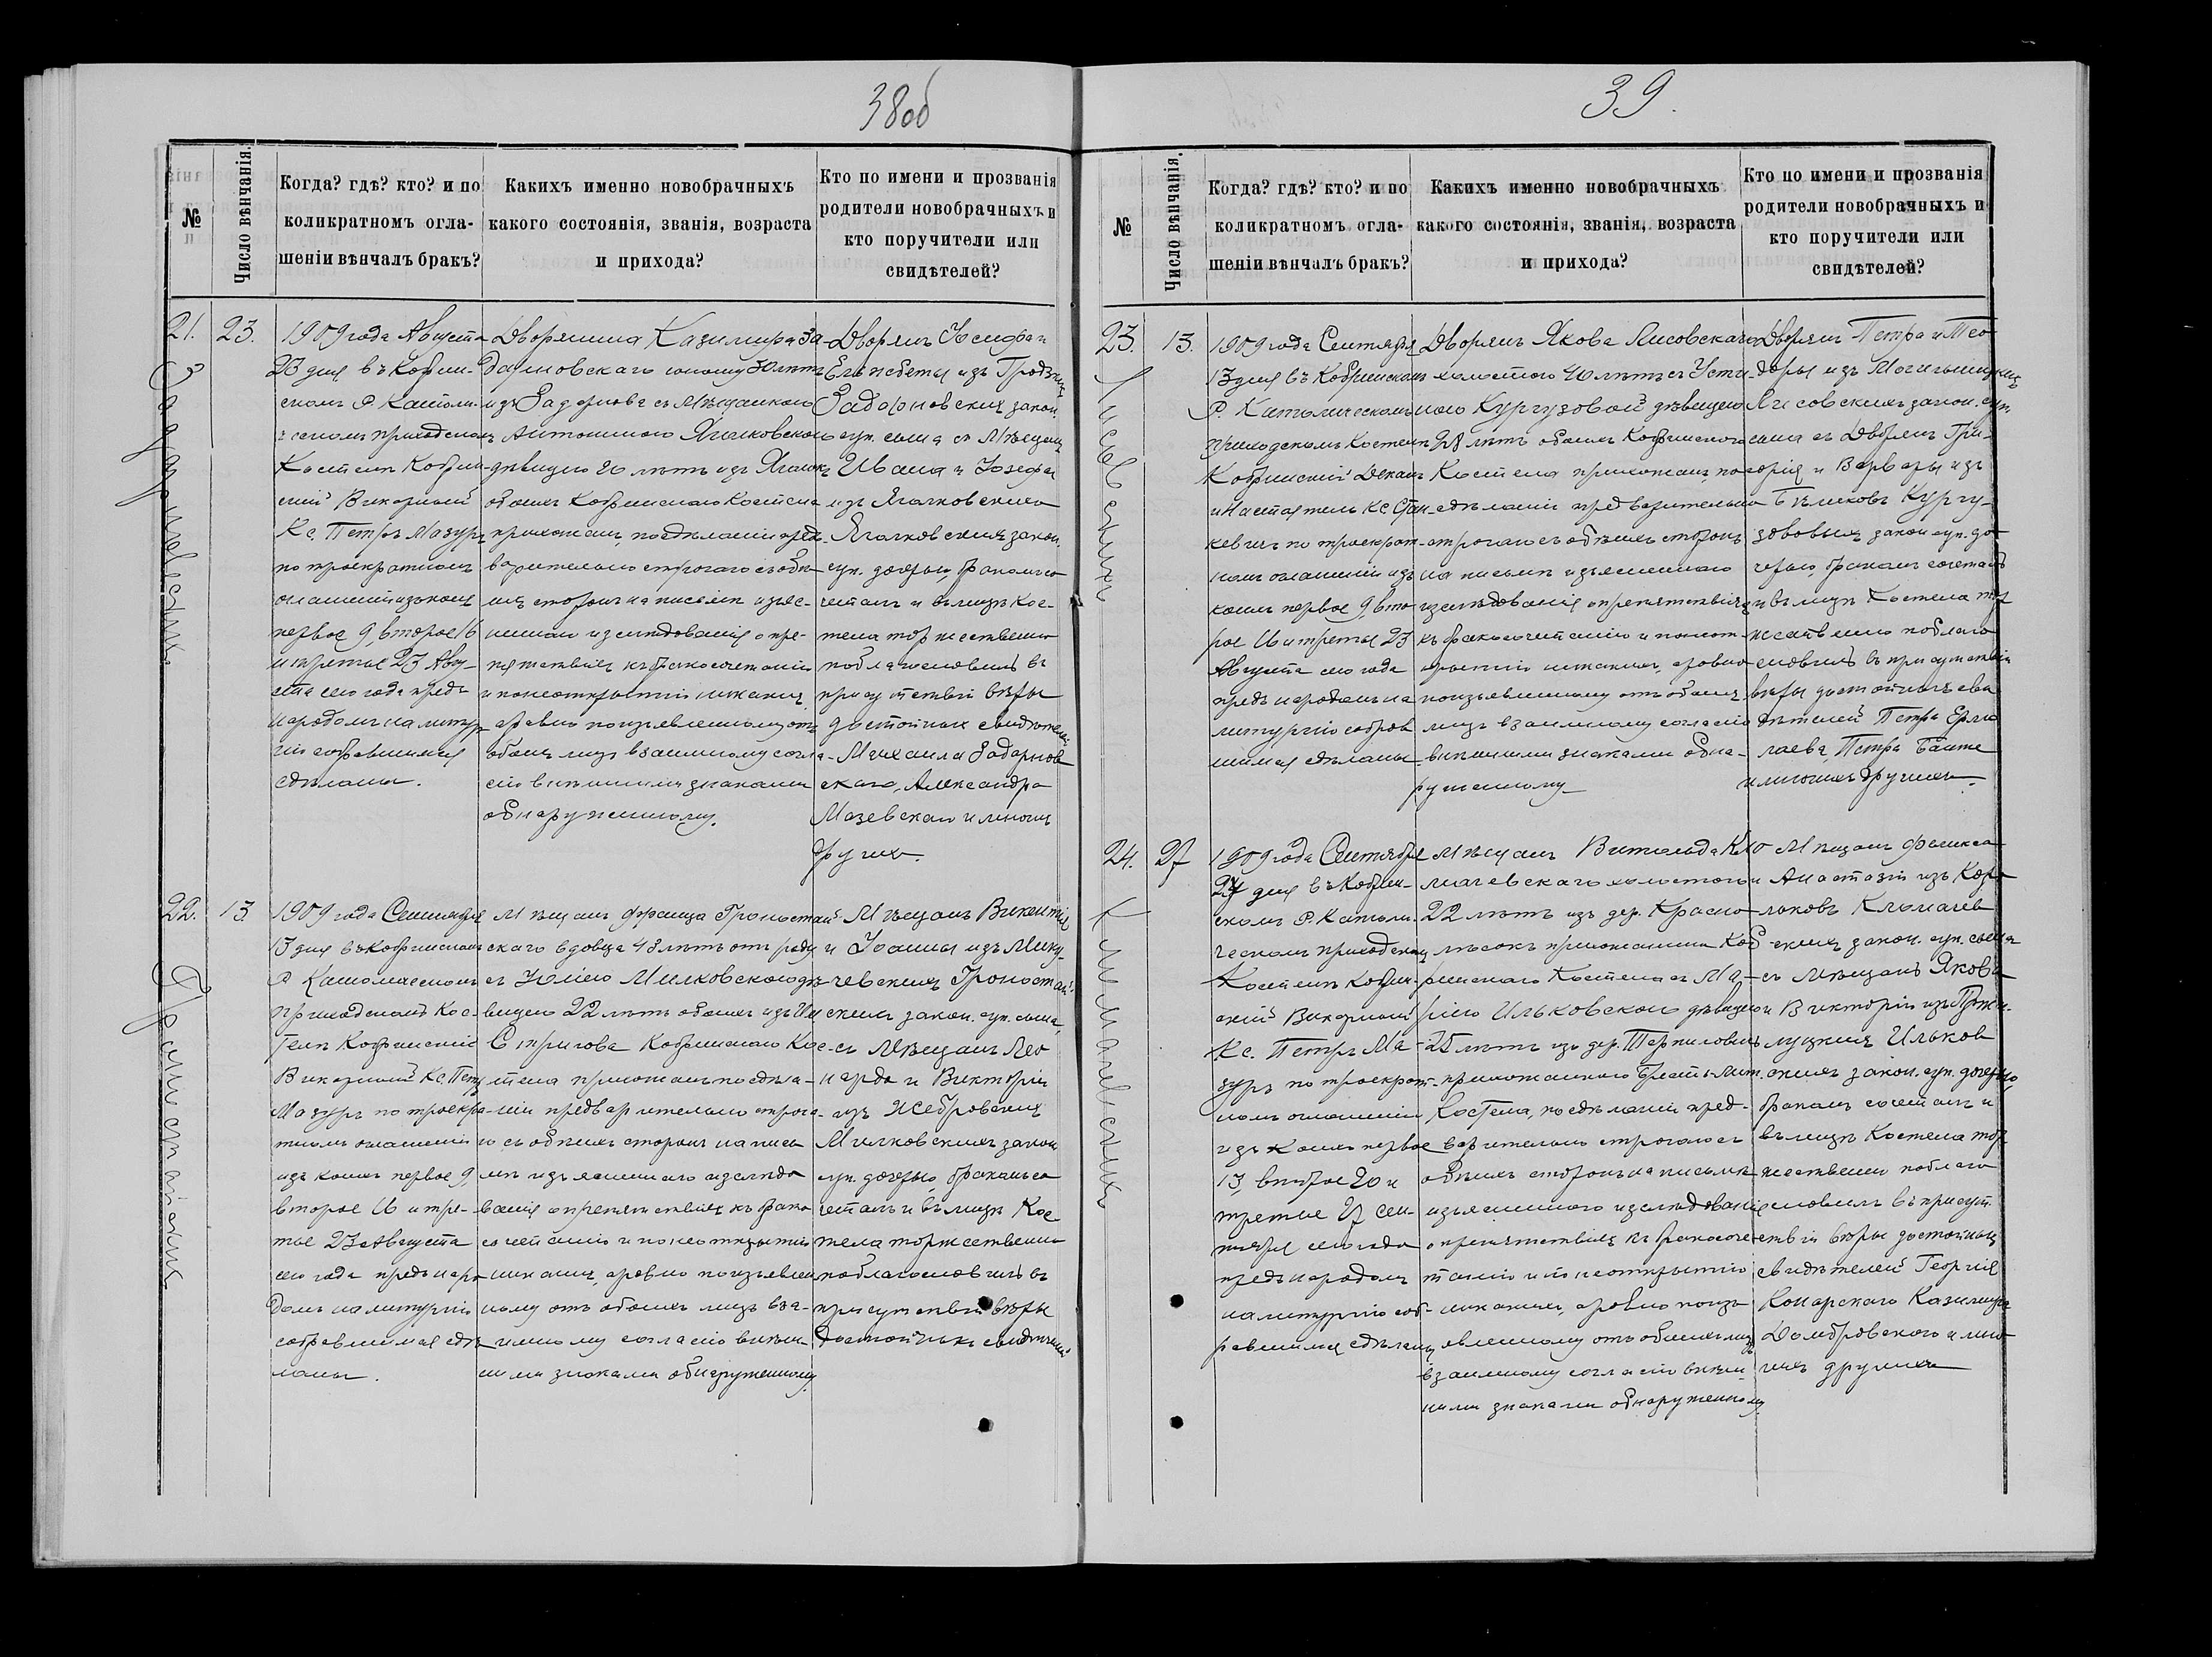 38об
№
Число вѣнчанія.
Когда? гдѣ? кто? и по
коликратномъ огла-
шеніи вѣнчалъ бракъ?
Какихъ именно новобрачныхъ
какого состоянія, званія, возраста
и прихода?
Кто по имени и прозванія
родители новобрачныхъ и
кто поручители или
свидѣтелей?
21.
23.
1909 года Августа
23 дня въ Кобрин-
скомъ Р. Католи-
ческомъ приходскомъ
Костелѣ Кобрин-
скій Викарный
Кс. Петръ Мазуръ
по троекратномъ
оглашеніи изъ коихъ
первое 9, второе 16
и третье 23 Авгу-
ста сего года предъ
народомъ на литур-
гію собравшимся
сдѣланы.
Дворянина Казимира За-
дарновскаго юношу 30 лѣтъ
изъ Задернова съ Мѣщанкою
Антониною Яголковскою
дѣвицею 20 лѣтъ изъ
обоихъ Кобринскаго Костела
прихожанъ, по сдѣланіи пред-
варительно строгаго съ обѣ-
ихъ сторонъ на письмѣ изъяс-
неннаго изслѣдованія о пре-
пятствіяхъ къ бракосочетанію
и по неоткрытіи никакихъ,
а равно по изъявленному отъ
обоихъ лицъ взаимному согла-
сію внѣшними знаками
обнаруженному.
Дворянъ Іосифа и
Елисабеты изъ
Задорновскихъ закон.
суп. сына съ Мѣщанъ
Ивана и Юзефы
изъ Яголковскихъ
Яголковскихъ закон.
суп. дочерью, бракомъ со-
четалъ и въ лицѣ Кос-
тела торжественно
поблагословилъ въ
присутствіи вѣры
достойныхъ свидѣтелей
Михаила Задарнов
скаго, Александра
Мазевскаго и многихъ
другихъ.
Задарновскихъ
22.
13.
1909 года Сентября
13 дня въ Кобринскомъ
Р. Католическомъ
приходскомъ Кос-
телѣ Кобринскій
Викарный Кс. Петръ
Мазуръ по троекра-
тномъ оглашеніи
изъ коихъ первое 9
второе 16 и тре-
тье 23 Августа
сего года предъ наро-
домъ на литургію
собравшимся сдѣ-
ланы.
Мѣщанъ Франца Гроностай-
скаго вдовца 43 лѣтъ отъ роду
съ Юліею Милковскою дѣ-
вицею 22 лѣтъ обоихъ изъ
Стригова Кобринскаго Кос-
тела прихожанъ по сдѣла-
ніи предварительно строга-
го съ обѣихъ сторонъ на пись
мѣ изъясненнаго изслѣдо
ванія о препятствіяхъ къ брако
сочетанію и по неоткрытіи
никакихъ, а равно по изъявлен
ному отъ обоихъ лицъ вза-
имному согласію внѣш-
ними знаками обнаруженному.
Мѣщанъ Викентія
и Іоанны изъ Мику-
чевскихъ Гроностай-
скихъ закон. суп. сына,
съ Мѣщанъ Лео
нарда и Викторіи
изъ Жебровскихъ
Милковскихъ закон
суп. дочерью, бракомъ со
четалъ и въ лицѣ Кос
тела торжественно
поблагословилъ въ
присутствіи вѣры
достойныхъ свидѣтелей
Гроностайскихъ
39.
№
Число вѣнчанія.
Когда? гдѣ? кто? и по
коликратномъ огла-
шеніи вѣнчалъ бракъ?
Какихъ именно новобрачныхъ
какого состоянія, званія, возраста
и прихода?
Кто по имени и прозванія
родители новобрачныхъ и
кто поручители или
свидѣтелей?
23.
13.
1909 года Сентября
13 дня въ Кобринскомъ
Р. Католическомъ
приходскомъ Костелѣ
Кобринскій Деканъ
и Настоятель Кс Стан-
кевичъ по троекрат-
номъ оглашеніи изъ
коихъ первое 9, вто-
рое 16 и третье 23
Августа сего года
предъ народомъ на
литургію собрав
шимся сдѣланы.
Дворянъ Якова Лисовскаго
холостого 40 лѣтъ съ Усти-
ною Кургузовой дѣвицею
28 лѣтъ обоихъ Кобринскаго
Костела прихожанъ, по
сдѣланіи предварительно
строгаго съ обѣихъ сторонъ
на письмѣ изъясненнаго
изслѣдованія о препятствіяхъ
къ бракосочетанію и по неот-
крытіи никакихъ, а равно
по изъявленному отъ обоихъ
лицъ взаимному согласію
внѣшними знаками обна-
руженному
Дворянъ Петра и Тео-
доры изъ
Лисовскихъ закон. суп.
сына съ Дворянъ Гри-
горія и Варвары изъ
Бѣликовъ Кургу-
зовыхъ закон суп. до-
черью, бракомъ сочеталъ
и въ лицѣ Костела тор
жественно поблаго
словилъ въ присутствіи
вѣры достойныхъ сви
дѣтелей Петра Ермо
лаева, Петра
и многихъ другихъ.
Лисовскихъ
24.
27
1909 года Сентября
27 дня въ Кобрин-
скомъ Р. Католи-
ческомъ приходскомъ
Костелѣ Кобрин-
скій Викарный
Кс. Петръ Ма-
зуръ по троекрат-
номъ оглашеніи
изъ коихъ первое
13, второе 20 и
третье 27 Сен-
тября сего года
предъ народомъ
на литургію соб-
равшимся сдѣланы
Мѣщанъ Витольда Кли
мачевскаго холостого
22 лѣтъ изъ дер. Красно
лѣсокъ прихожанина Коб
ринскаго Костела съ Ма-
ріею Ильковскою дѣвицею
25 лѣтъ изъ дер.
прихожанкою Брестъ-Лит.
Костела, по сдѣланіи пред-
варительно строгаго съ
обѣихъ сторонъ на письмѣ
изъясненнаго изслѣдованія
о препятствіяхъ къ бракосоче-
танію и по неоткрытіи
никакихъ, а равно по изъ
явленному отъ обоихъ лицъ
взаимному согласію внѣш
ними знаками обнаруженному.
Мѣщанъ Феликса
и Анастазіи изъ Коро
льковъ Климачев
скихъ закон. суп. сына
съ Мѣщанъ Якова
и Викторіи изъ
Ильков
скихъ закон. суп. дочерью,
бракомъ сочеталъ и
въ лицѣ Костела тор
жественно поблаго
словилъ въ присут
ствіи вѣры достойныхъ
свидѣтелей Георгія
Конарскаго Казимира
Домбровскаго и мно
гихъ другихъ
Климачевскихъ